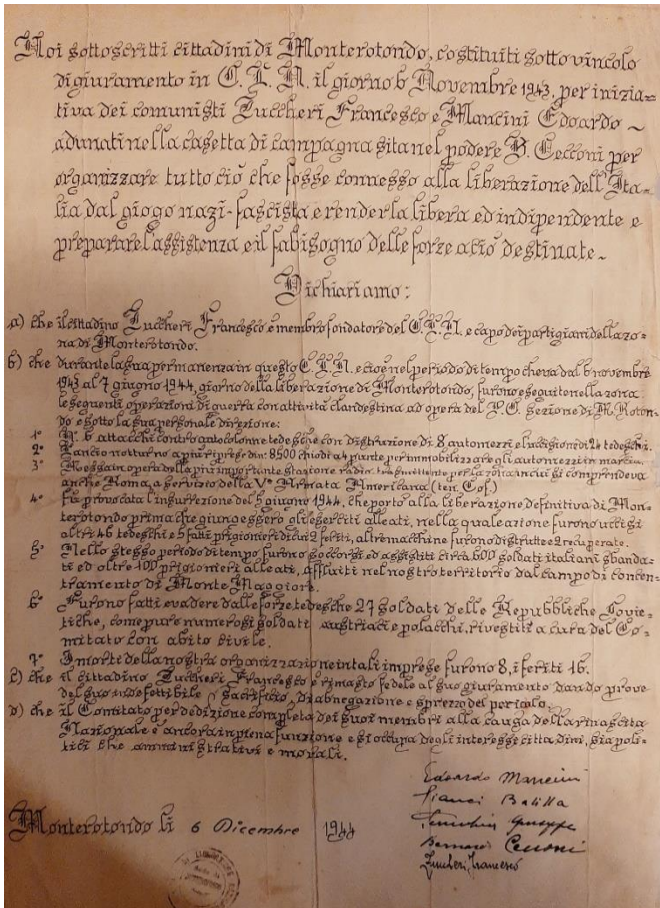 Noi sottoscritti cittadini di Monterotondo, costituiti sotto vincolo
di giuramento in C. L. N. il giorno 6 Novembre 1943, per inizia=
tiva dei comunisti Zuccheri Francesco e Mancini Edoardo ~
adunati nella casetta di campagna sita nel podere B. Cecconi per
organizzare tutto ciò che fosse connesso alla liberazione dell'Ita=
lia dal giogo nazi-fascista e renderla libera ed indipendente e
preparare l'assistenza e il fabisogno delle forze a ciò destinate ~
Dichiariamo:
a) che il cittadino Zuccheri Francesco è membro fondatore del C.L.N. e capo dei partigiani della zo=
na di Monterotondo.
b) che durante la sua permanenza in questo C.L.N. e cioè nel periodo di tempo che va dal 6 novembre
1943 al 7 giugno 1944, giorno della liberazione di Monterotondo, furono eseguite nella zona
le seguenti operazioni di guerra con attività clandestina ad opera del P.C. Sezione di M. Roton=
do e sotto la sua personale direzione:
1° N. 6 attacchi contro autocolonne tedesche con distruzione di 8 automezzi e l'uccisione di 24 tedeschi.
2° Lancio notturno a più riprese di n. 8500 chiodi a 4 punte per immobilizzare gli automezzi in marcia.
3° Messa in opera della più importante stazione radio trasmittente per la zona in cui si comprendeva
anche Roma, a servizio della Vª Armata Americana (ten. Cof.)
4° Fu provocata l'insurrezione del 5 giugno 1944, che portò alla liberazione definitiva di Mon=
terotondo prima che giungessero gli eserciti alleati, nella quale azione furono uccisi
altri 46 tedeschi e 5 fatti prigionieri di cui 2 feriti, altre macchine furono distrutte e 2 recuperate.
5° Nello stesso periodo di tempo furono soccorsi ed assistiti circa 600 soldati italiani sbanda=
ti ed oltre 400 prigionieri alleati, affluiti nel nostro territorio dal campo di concen=
tramento di Monte Maggiore.
6° Furono fatti evadere dalle forze tedesche 27 soldati delle Repubbliche Sovie=
tiche, come pure numerosi soldati austriaci e polacchi, rivestiti a cura del Co=
mitato con abito civile.
7° I morti della nostra organizzazione in tali imprese furono 8, i feriti 16.
c) che il cittadino Zuccheri Francesco è rimasto fedele al suo giuramento dando prove
del suo indefettibile sacrificio, di abnegazione e sprezzo del pericolo.
d) che il Comitato per dedizione completa dei suoi membri alla causa della rinascita
Nazionale è ancora in piena funzione e si occupa degli interessi cittadini, sia poli=
tici che amministrativi e morali.
Edoardo Mancini
Balilla
Giuseppe
Bernardo Cecconi
Zuccheri Francesco
Monterotondo li 6 Dicembre 1944